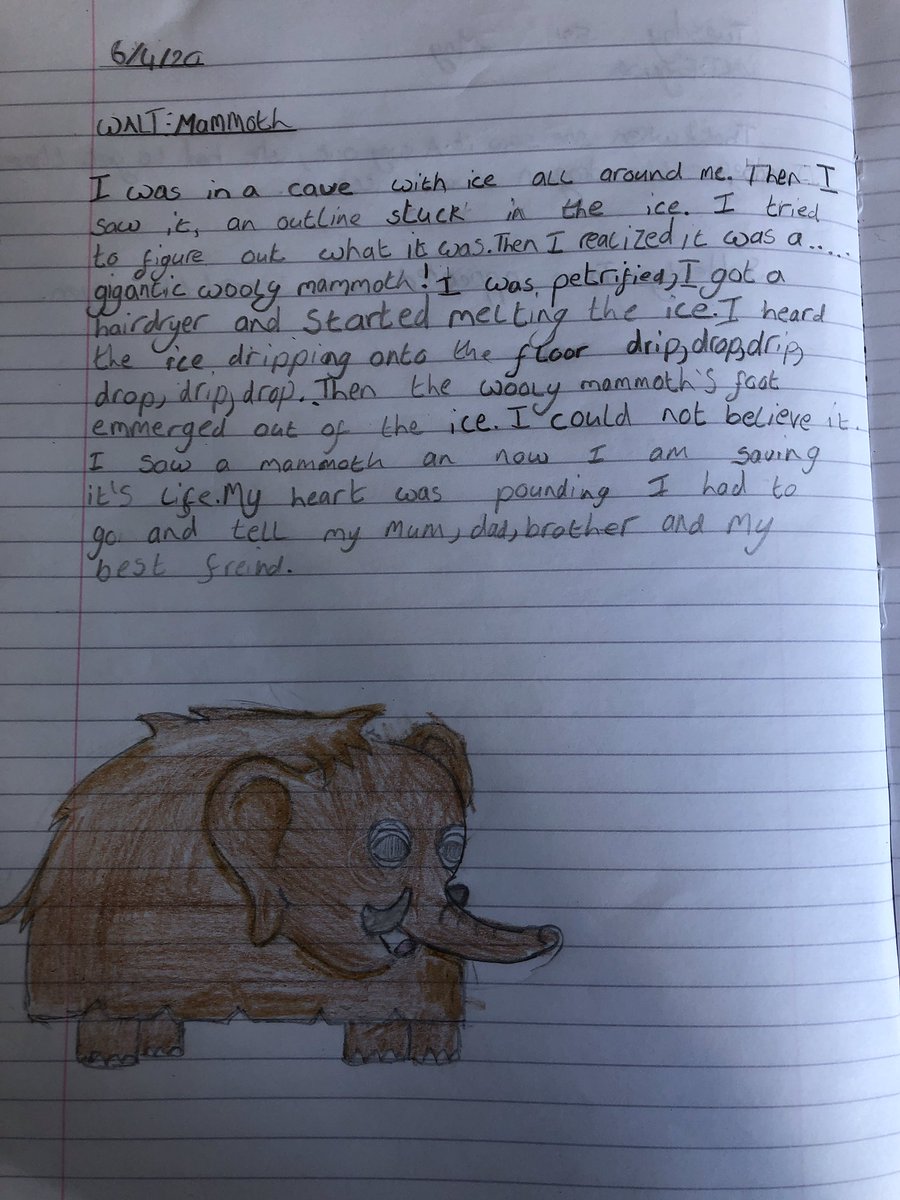 6/4/20
WALT: Mammoth
I was in a cave with ice all around me. Then I
saw it, an outline stuck in the ice. I tried
to figure out what it was. Then I realized it was a.....
gigantic wooly mammoth! I was petrified, I got a
hairdryer and started melting the ice. I heard
the ice dripping onto the floor drip, drop, drip,
drop, drip, drop. Then the wooly mammoth's foot
emmerged out of the ice. I could not believe it.
I saw a mammoth an now I am saving
it's life. My heart was pounding I had to
go and tell my mum, dad, brother and my
best freind.